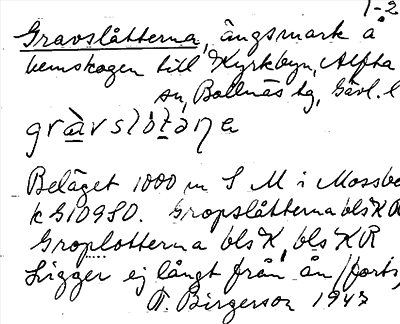 1-2
Gravslåtterna, ängsmark å
hemskogen till Kyrkbyn, Alfta
sn, Bollnäs tg, Gävl. l
Beläget 1000 m S M i Mossbo
k G10980. Gropslåtterna bls K R
Groplotterna bls K, bls K R
Ligger ej långt från ån /forts,
T. Birgerson 1943